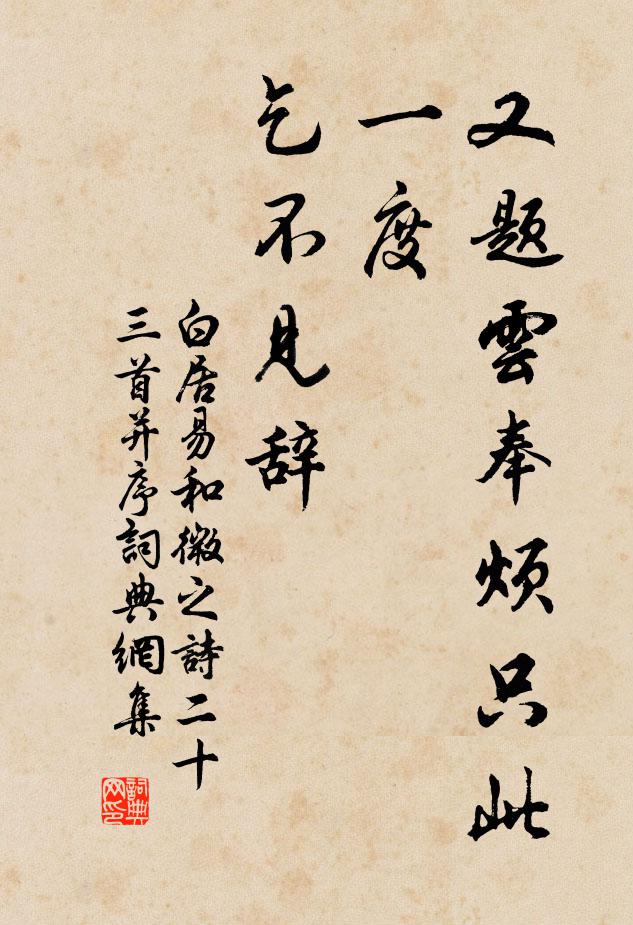 又题雲奉烦只此
一度
乞不见辞
白居易和微之詩二十
三首并序詞典網集
詞典
网印